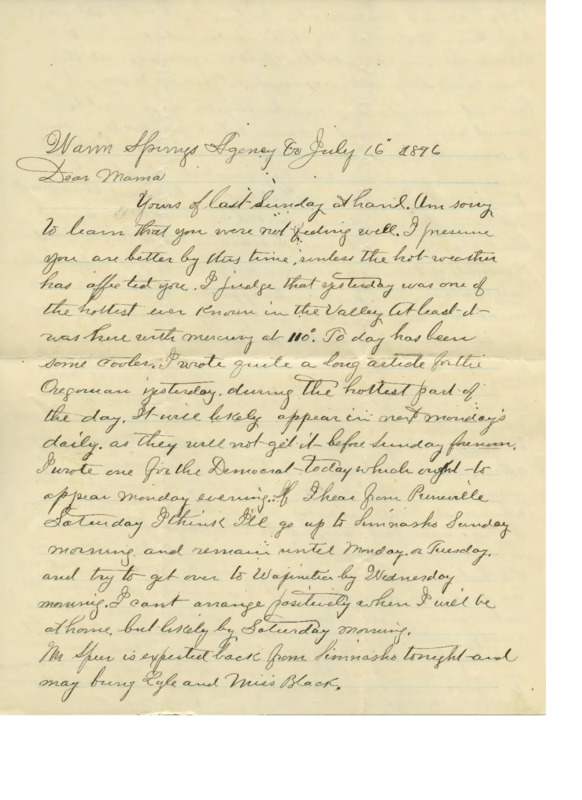 Warm Springs Agency Or July 16" 1896
Dear Mama
Yours of last Sunday at hand. Am sorry
to learn that you were not feeling well. I presume
you are better by this time, unless the hot weather
has affected you. I judge that yesterday was one of
the hottest ever known in the Valley At least it
was here with mercury at 110°. To day has been
some cooler. I wrote quite a long article for the
Oregonian yesterday, during the hottest part of
the day. It will likely appear in next monday's
daily, as they will not get it before Sunday forenoon.
I wrote one for the Democrat today which ought to
appear monday evening. If I hear from Prineville
Saturday I think I'll go up to Simnasho Sunday
morning and remain until Monday, or Tuesday,
and try to get over to Wapinitia by Wednesday
morning. I cant arrange positively when I will be
at home, but likely by Saturday morning.
Mr Speer is expected back from Simnasho tonight and
may bring and Miss Black.